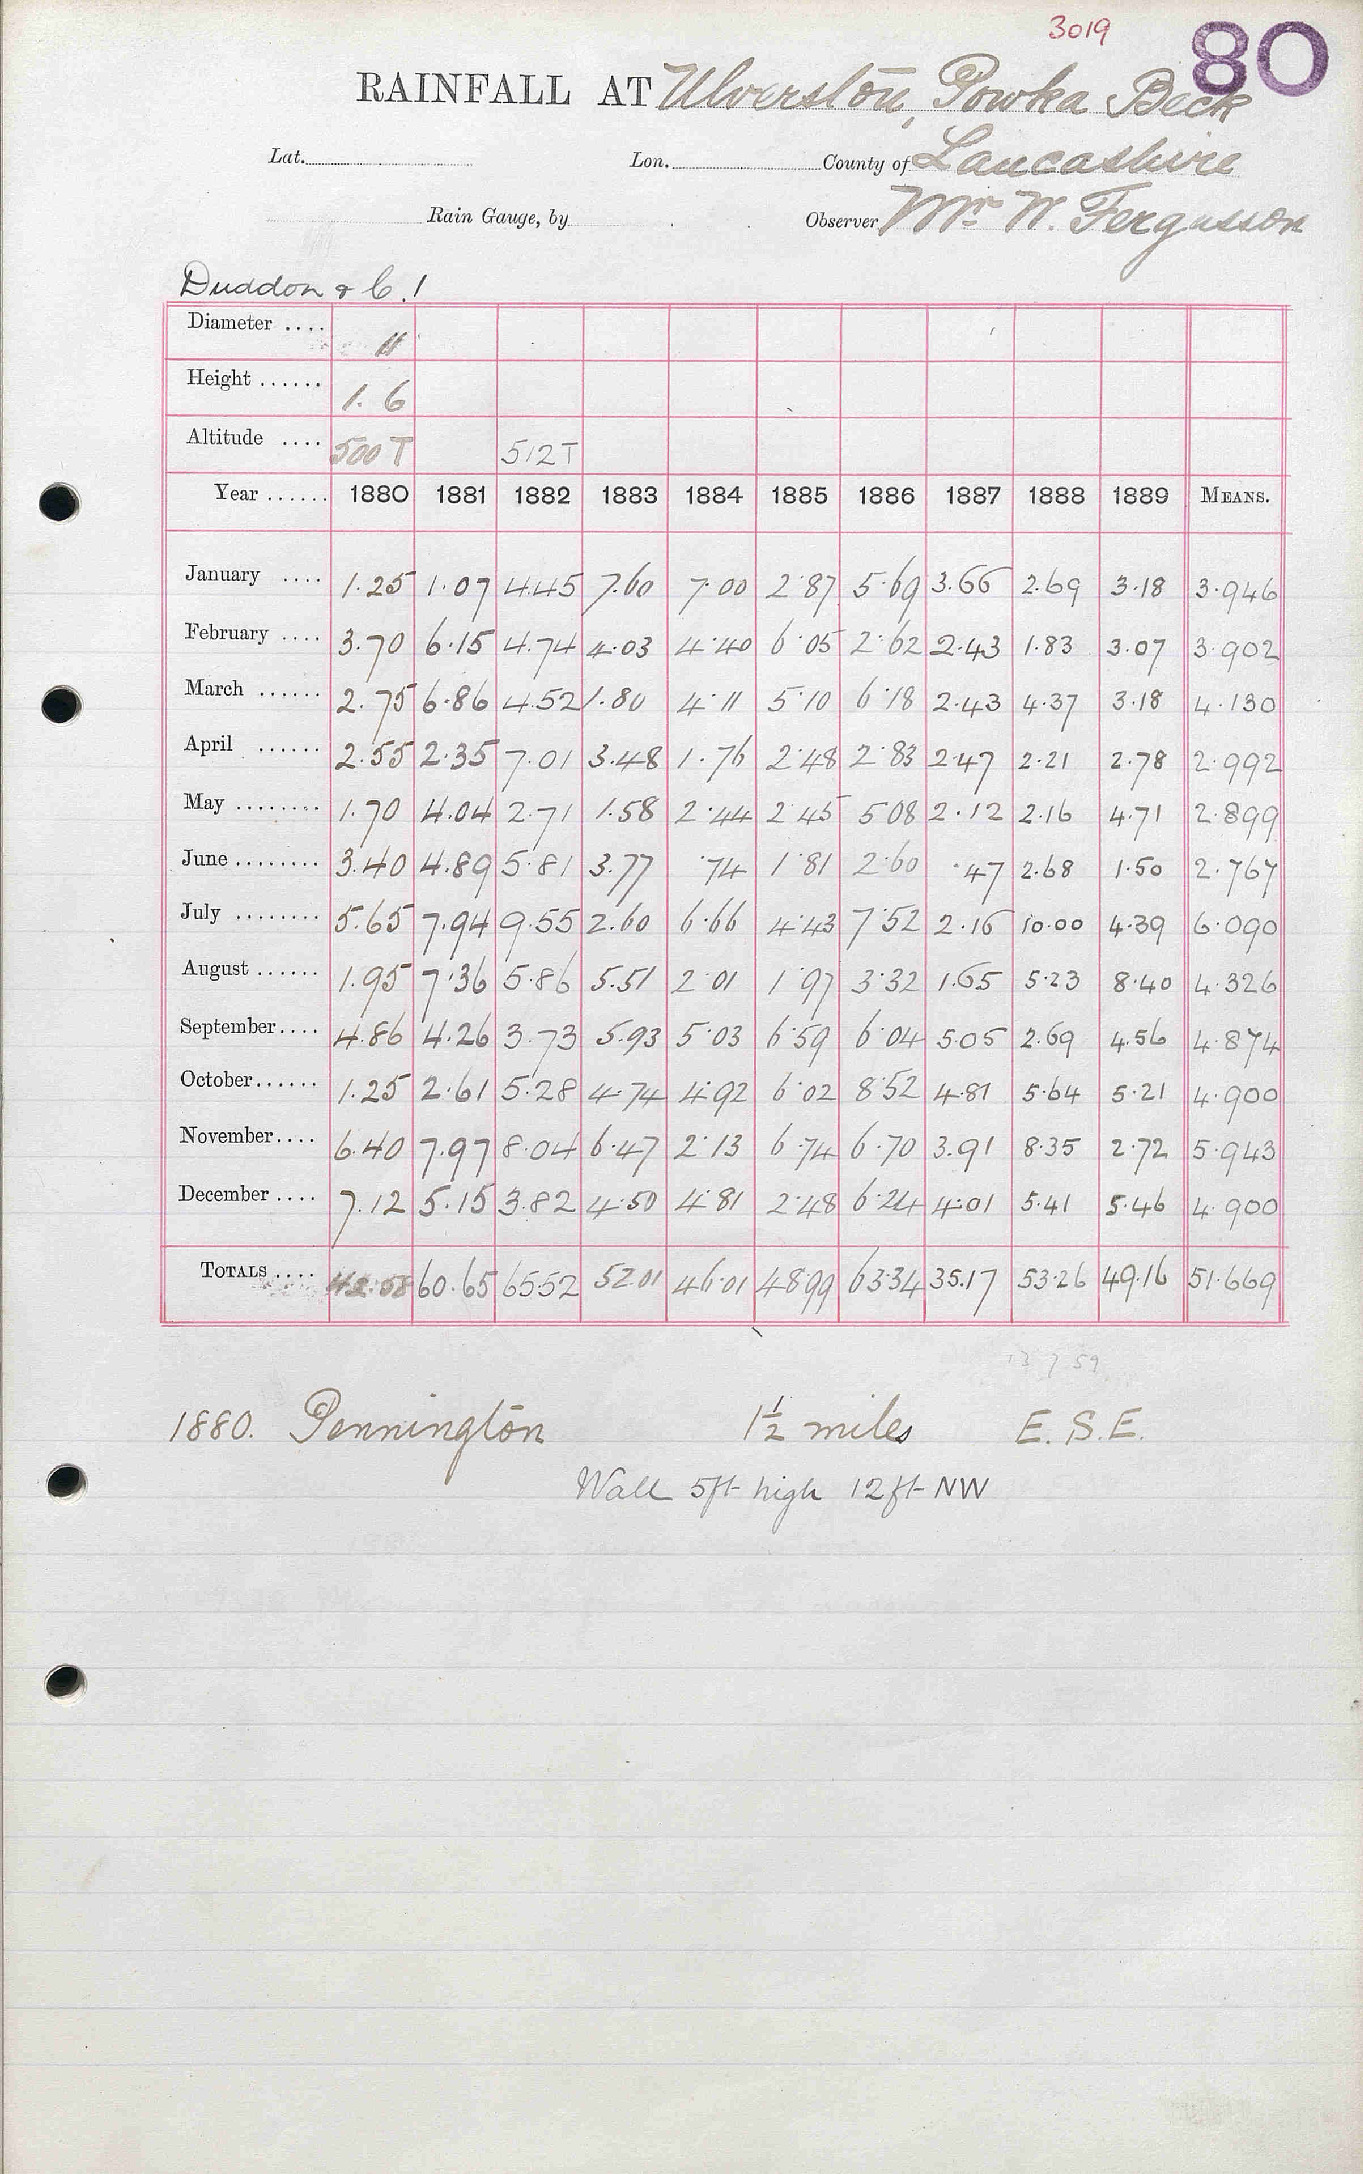 3019
80
RAINFALL AT Ulverston, Powka Beck
Lat. Lon. County of Lancashire
Rain Gauge, by Observer Mr. W. Fergusson
Duddon & C. 1
Diameter .... 11
Height ...... 1. 6
Altitude .... 500 T 512 T
Year ...... 1880 1881 1882 1883 1884 1885 1886 1887 1888 1889 MEANS.
January .... 1.25 1.07 4.45 7.60 7.00 2.87 5.69 3.66 2.69 3.18 3.946
February .... 3.70 6.15 4.74 4.03 4.40 6.05 2.62 2.43 1.83 3.07 3.902
March ...... 2.75 6.86 4.52 1.80 4.11 5.10 6.18 2.43 4.37 3.18 4.130
April ...... 2.55 2.35 7.01 3.48 1.76 2.48 2.83 2.47 2.21 2.78 2.992
May ........ 1.70 4.04 2.71 1.58 2.44 2.45 5.08 2.12 2.16 4.71 2.899
June ........ 3.40 4.89 5.81 3.77 .74 1.81 2.60 .47 2.68 1.50 2.767
July ........ 5.65 7.94 9.55 2.60 6.66 4.43 7.52 2.16 10.00 4.39 6.090
August ...... 1.95 7.36 5.86 5.51 2.01 1.97 3.32 1.65 5.23 8.40 4.326
September .... 4.86 4.26 3.73 5.93 5.03 6.59 6.04 5.05 2.69 4.56 4.874
October ...... 1.25 2.61 5.28 4.74 4.92 6.02 8.52 4.81 5.64 5.21 4.900
November .... 6.40 7.97 8.04 6.47 2.13 6.74 6.70 3.91 8.35 2.72 5.943
December .... 7.12 5.15 3.82 4.50 4.81 2.48 6.24 4.01 5.41 5.46 4.900
TOTALS .... 42.58 60.65 65.52 52.01 46.01 48.99 63.34 35.17 53.26 49.16 51.669
1880. Pennington 1½ miles E. S. E.
Wall 5ft high 12ft NW